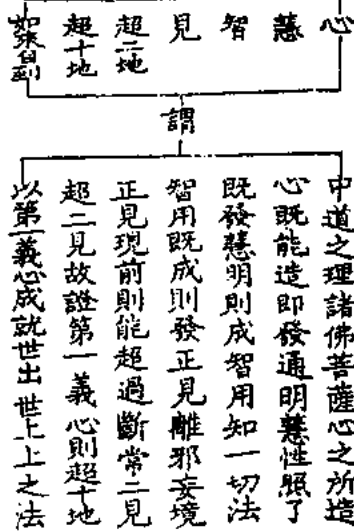 心
慧
智
見
超二地
超十地
如來自到
謂
中道之理諸佛菩薩心之所造
心既能造即發通明慧性照了
既發慧明則成智用知一切法
智用既成則發正見離邪妄境
正見現前則能超過斷常二見
超二見故證第一義心則超十地
以第一義心成就世出世上上之法